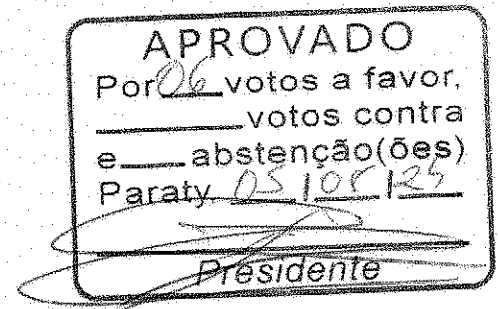 APROVADO
Por 06 votos a favor,
______ votos contra
e ___ abstenção(ões)
Paraty 05 / 05 / 25
Presidente